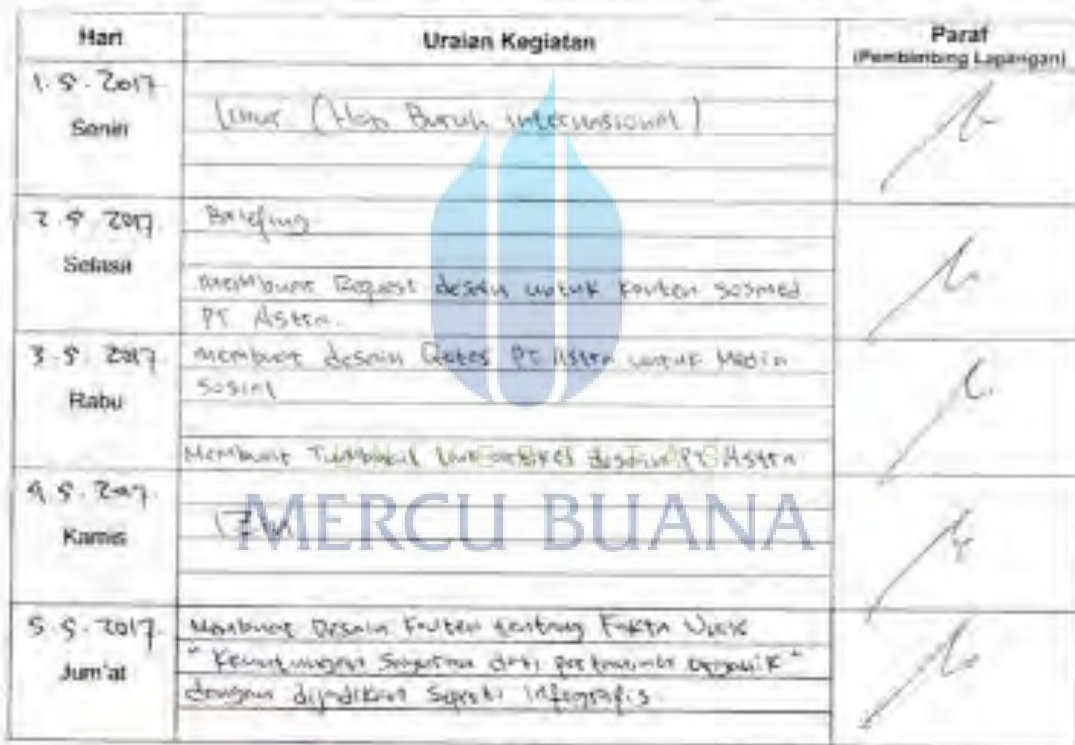 Hari
Uraian Kegiatan
Paraf
(Pembimbing Lapangan)
1.5.2017.
Senin
Libur (Hari Buruh internasional)
2.5.2017.
Selasa
Briefing.
membuat Request desain untuk konten sosmed
PT Astra.
3.5.2017.
Rabu
membuat desain Qotes PT Astra untuk Media
Sosial
Membuat desain PT Astra
4.5.2017.
Kamis
IZIN
MERCU BUANA
5.5.2017.
Jum'at
Membuat Desain Konten tentang Fakta Unik
"Keuntungan dari pertanian organik"
dengan dijadikan Seperti infografis.